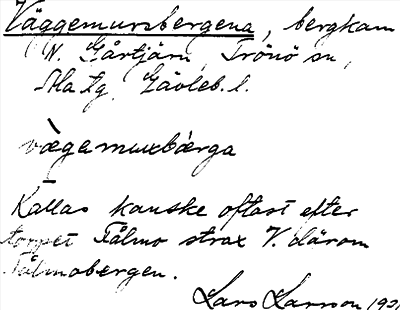 Väggemursbergena, bergkam
N. Gårtjärn, Trönö sn,
Ala tg. Gävleb. l.
vægemuxbærga
Kallas kanske oftast efter
torpet Tålmo strax V. därom
Tålmobergen.
Lars Larsson 19